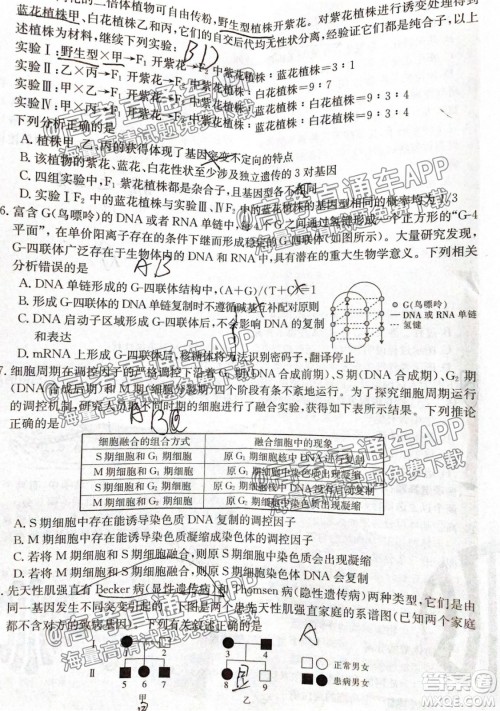 的二倍体植物可自由传粉,野生型植株开紫花。对紫花植株进行诱变处理得到
蓝花植株甲、白花植株乙和丙,它们的自交后代均无性状分离,经验证它们都是纯合子,以上
述植株为材料,继续下列实验: BD
实验Ⅰ:野生型×甲→F₁ 开紫花→F₂ 中紫花植株:蓝花植株=3:1
实验Ⅱ:乙×丙→F₁ 开紫花→F₂ 中紫花植株:白花植株=9:7
实验Ⅲ:甲×乙→F₁ 开紫花→F₂ 中紫花植株:蓝花植株:白花植株=9:3:4
实验Ⅳ:甲×丙→F₁ 开紫花→F₂ 中紫花植株:蓝花植株:白花植株=9:3:4
下列分析正确的是
A. 甲、乙、丙的获得体现了基因突变不定向的特点
B. 该植物的紫花、蓝花、白花性状至少涉及独立遗传的 3 对基因
C. 四组实验中,F₁ 都开紫花,且基因型各不相同
D. 实验Ⅲ的 F₂ 与实验Ⅳ的 F₂ 中的蓝花植株基因型相同的概率均为 1/3
6. 富含 G(鸟嘌呤)的 DNA 或者 RNA 单链中,每 4 个 G 之间通过氢键形成一个正方形的“G-4
平面”,在单价阳离子存在的条件下继而形成稳定的 G-四联体(如图所示)。大量研究发现,
G-四联体广泛存在于生物体内的 DNA 和 RNA 单链中,具有潜在的重大生物学意义。下列相关
分析错误的是 AB
A. DNA 单链形成的 G-四联体结构中,(A+G)/(T+C)=1
B. 形成 G-四联体的 DNA 单链复制时不遵循碱基互补配对原则
C. DNA 启动子区域形成 G-四联体,不会影响 DNA 的复制
和表达
D. mRNA 上形成 G-四联体后,核糖体将无法识别密码子,翻译停止
G(鸟嘌呤)
DNA 或 RNA 单链
氢键
7. 细胞周期在调控因子的严格调控下沿着 G₁ 期(DNA 合成前期)、S 期(DNA 合成期)、G₂ 期
(DNA 合成后期)和 M 期(细胞分裂期)四个阶段有条不紊地运行。为了探究细胞周期运行
的调控机制,研究人员用不同时期的细胞进行了融合实验。获得的数据如下表所示结果。下列推论
正确的是
细胞融合的组合方式 融合细胞中的现象
S 期细胞和 G₁ 期细胞 原 G₁ 期细胞核中 DNA 进行复制
M 期细胞和 G₁ 期细胞 原 G₁ 期细胞中染色质出现凝缩
S 期细胞和 G₂ 期细胞 原 G₂ 期细胞核中 DNA 没有启动复制
M 期细胞和 G₂ 期细胞 原 G₂ 期细胞中染色质出现凝缩
A. S 期细胞中存在能诱导染色质 DNA 复制的调控因子
B. M 期细胞中存在能诱导染色质凝缩成染色体的调控因子
C. 若将 M 期和 S 期细胞融合,则原 S 期细胞中染色质会出现凝缩
D. 若将 M 期和 S 期细胞融合,则原 S 期细胞中染色体 DNA 会继续复制
先天性肌强直有 Becker 病(显性遗传病)和 Thomsen 病(隐性遗传病)两种类型,它们是由
同一基因发生不同突变引起的。下图是两个患先天性肌强直家庭的系谱图(已知两个家庭
都不含对方的致病基因)。下列有关叙述正确的是 A
Ⅰ 1 2 3 4
Ⅱ 5 6 7 8 9
正常男女
患病男女
甲 乙
@高考直通车APP
海量高清试题免费下载
答案圈
MXQE.COM